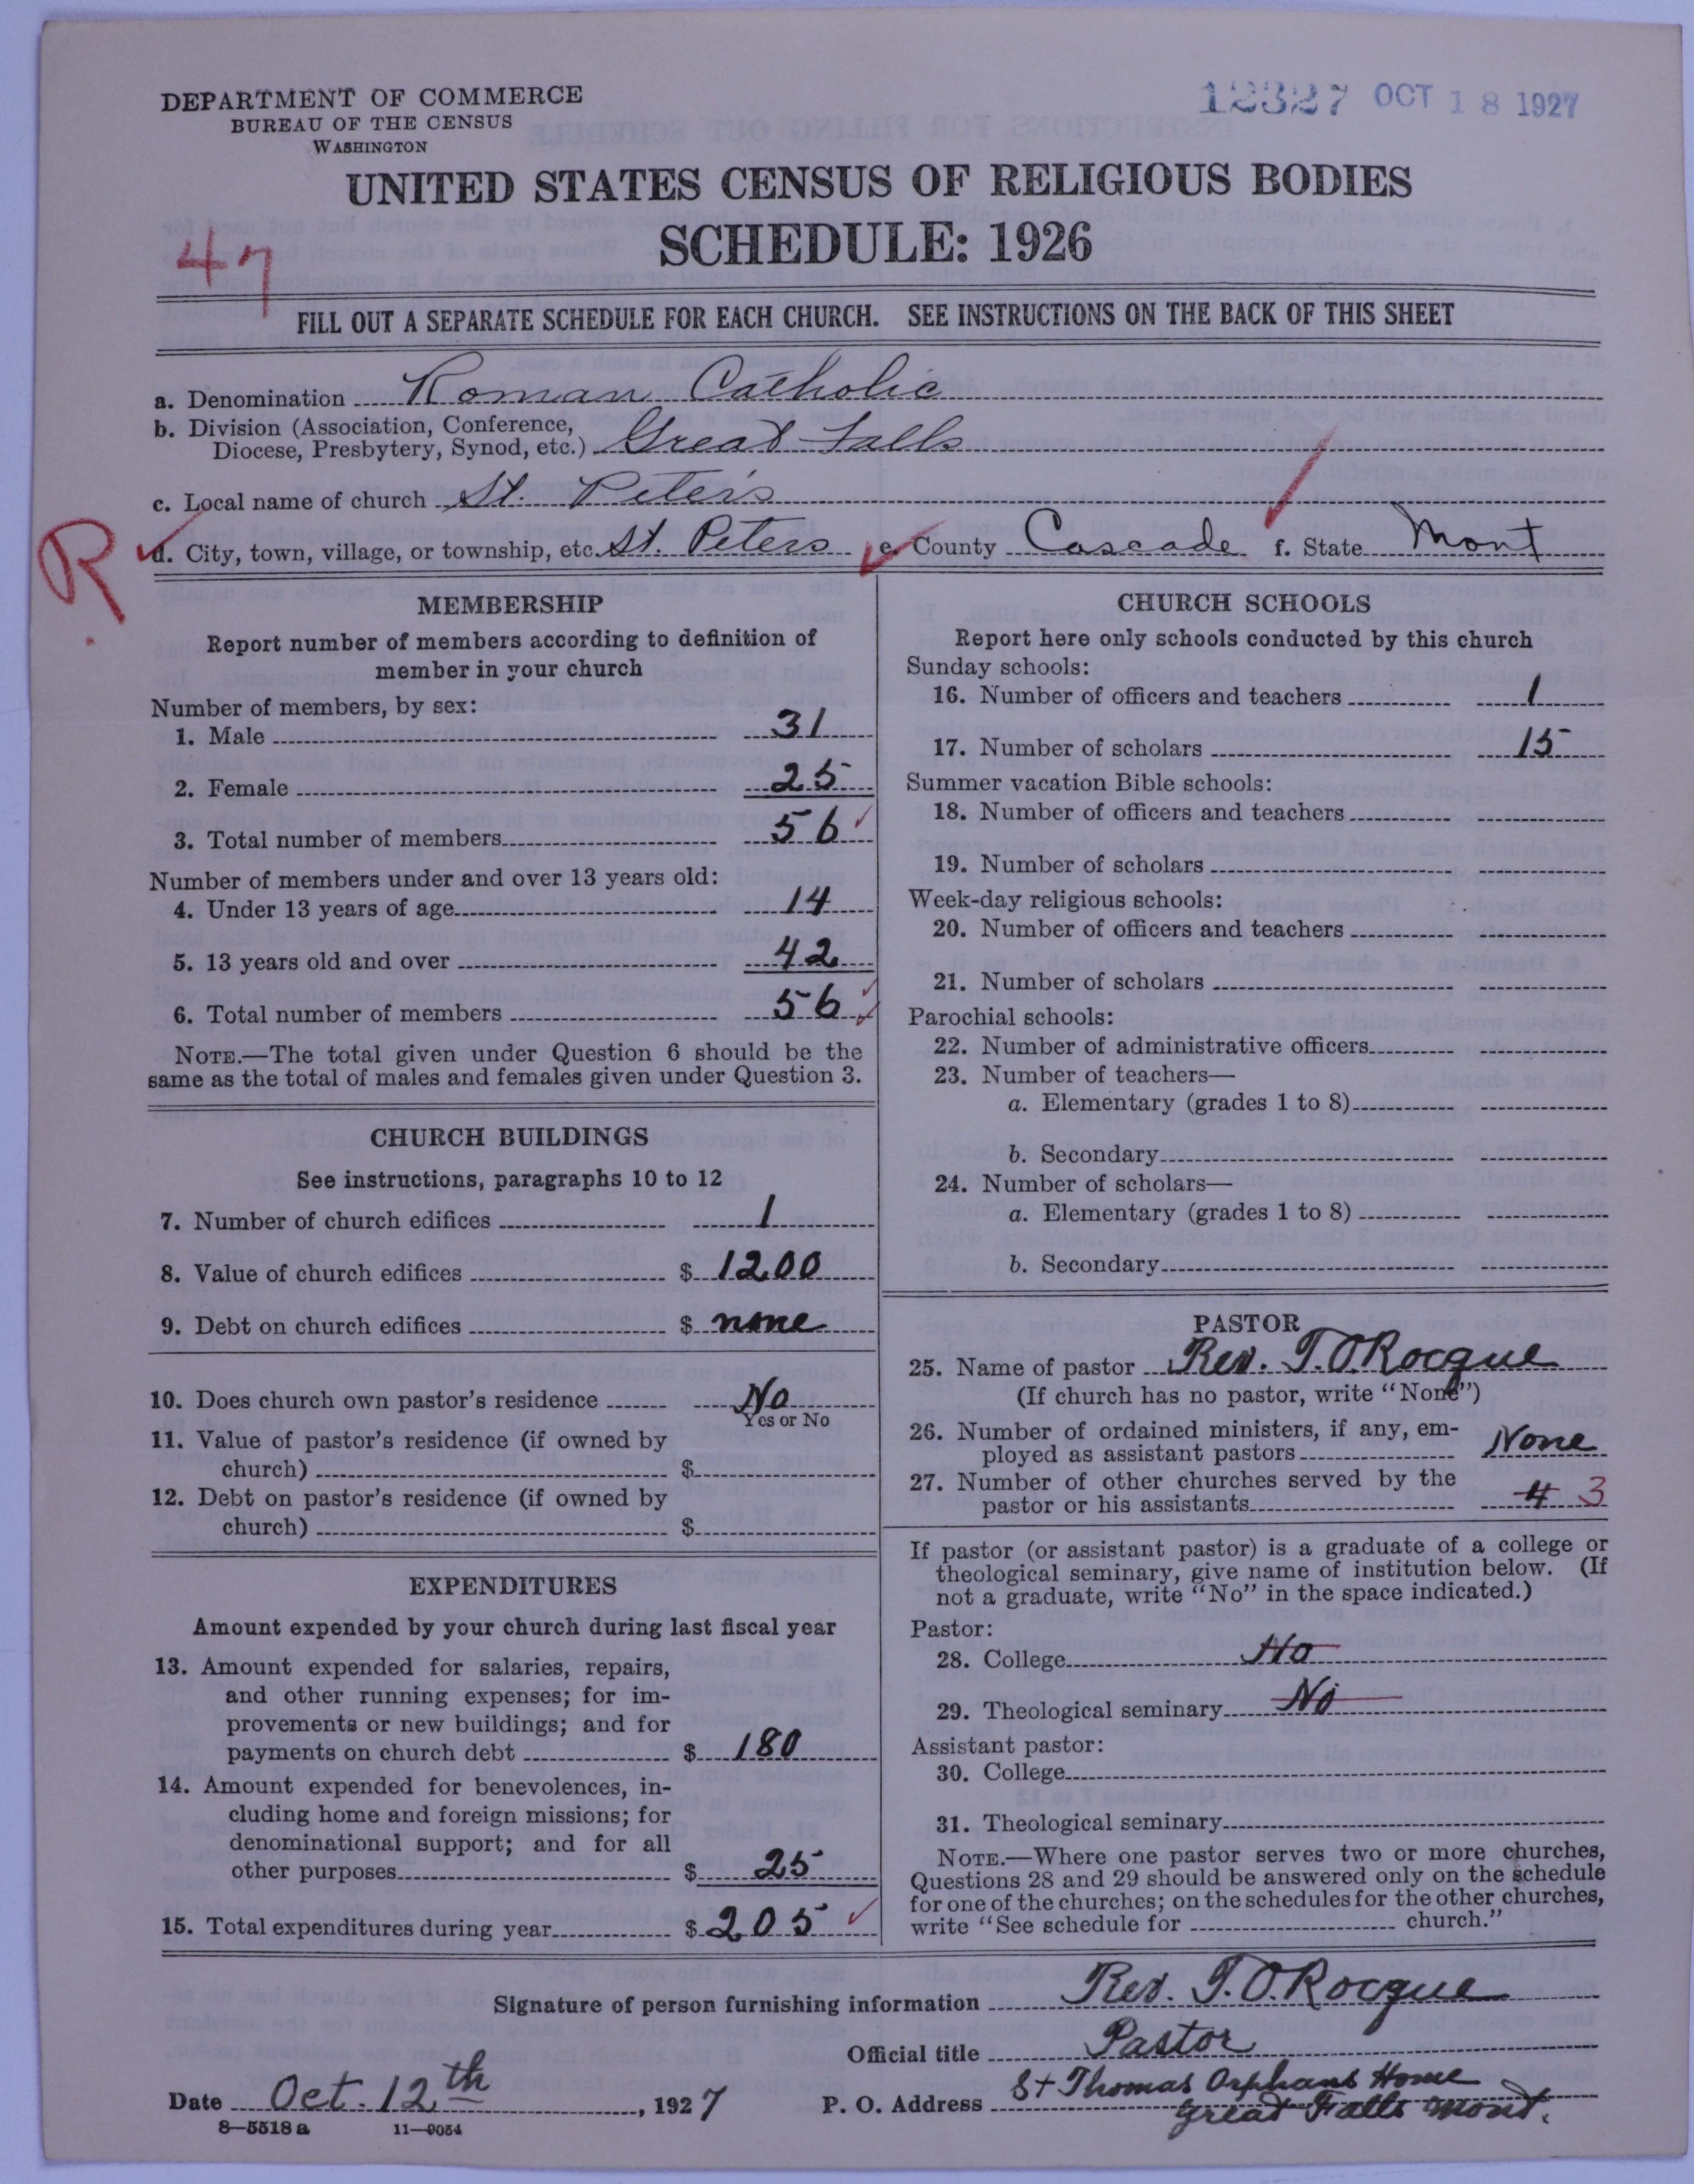 DEPARTMENT OF COMMERCE
BUREAU OF THE CENSUS
WASHINGTON
12327 OCT 18 1927
UNITED STATES CENSUS OF RELIGIOUS BODIES
SCHEDULE: 1926
47
FILL OUT A SEPARATE SCHEDULE FOR EACH CHURCH. SEE INSTRUCTIONS ON THE BACK OF THIS SHEET
a. Denomination Roman Catholic
b. Division (Association, Conference,
Diocese, Presbytery, Synod, etc.) Great Falls
c. Local name of church St. Peter's
R
d. City, town, village, or township, etc. St. Peters e. County Cascade f. State Mont
MEMBERSHIP
Report number of members according to definition of
member in your church
Number of members, by sex:
1. Male 31
2. Female 25
3. Total number of members 56
Number of members under and over 13 years old:
4. Under 13 years of age 14
5. 13 years old and over 42
6. Total number of members 56
NOTE.—The total given under Question 6 should be the
same as the total of males and females given under Question 3.
CHURCH BUILDINGS
See instructions, paragraphs 10 to 12
7. Number of church edifices 1
8. Value of church edifices $ 1200
9. Debt on church edifices $ none
10. Does church own pastor's residence No
Yes or No
11. Value of pastor's residence (if owned by
church) $
12. Debt on pastor's residence (if owned by
church) $
EXPENDITURES
Amount expended by your church during last fiscal year
13. Amount expended for salaries, repairs,
and other running expenses; for im-
provements or new buildings; and for
payments on church debt $ 180
14. Amount expended for benevolences, in-
cluding home and foreign missions; for
denominational support; and for all
other purposes $ 25
15. Total expenditures during year $ 205
CHURCH SCHOOLS
Report here only schools conducted by this church
Sunday schools:
16. Number of officers and teachers 1
17. Number of scholars 15
Summer vacation Bible schools:
18. Number of officers and teachers
19. Number of scholars
Week-day religious schools:
20. Number of officers and teachers
21. Number of scholars
Parochial schools:
22. Number of administrative officers
23. Number of teachers—
a. Elementary (grades 1 to 8)
b. Secondary
24. Number of scholars—
a. Elementary (grades 1 to 8)
b. Secondary
PASTOR
25. Name of pastor Rev. T. O. Rocque
(If church has no pastor, write "None")
26. Number of ordained ministers, if any, em-
ployed as assistant pastors None
27. Number of other churches served by the
pastor or his assistants 4 3
If pastor (or assistant pastor) is a graduate of a college or
theological seminary, give name of institution below. (If
not a graduate, write "No" in the space indicated.)
Pastor:
28. College No
29. Theological seminary No
Assistant pastor:
30. College
31. Theological seminary
NOTE.—Where one pastor serves two or more churches,
Questions 28 and 29 should be answered only on the schedule
for one of the churches; on the schedules for the other churches,
write "See schedule for church."
Signature of person furnishing information Rev. T. O. Rocque
Official title Pastor
Date Oct. 12th, 1927 P. O. Address St Thomas Orphans Home
Great Falls Mont.
8—5518a 11—9054